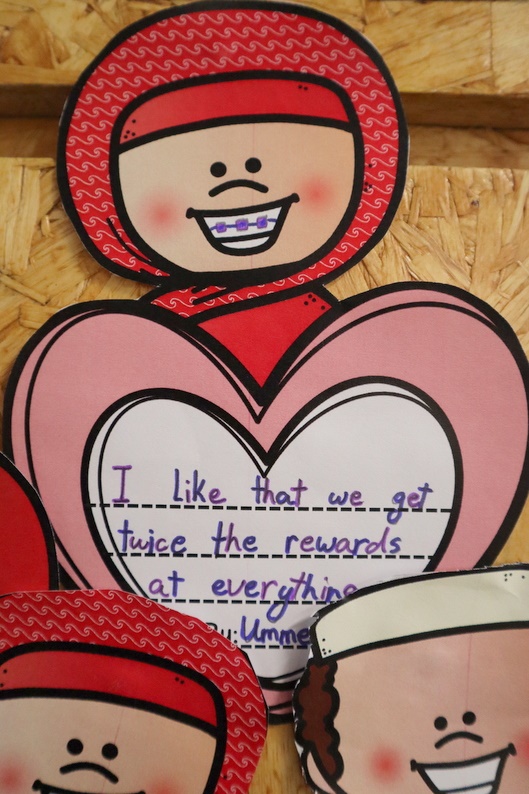 I like that we get
twice the rewards
at everything
By: Umme